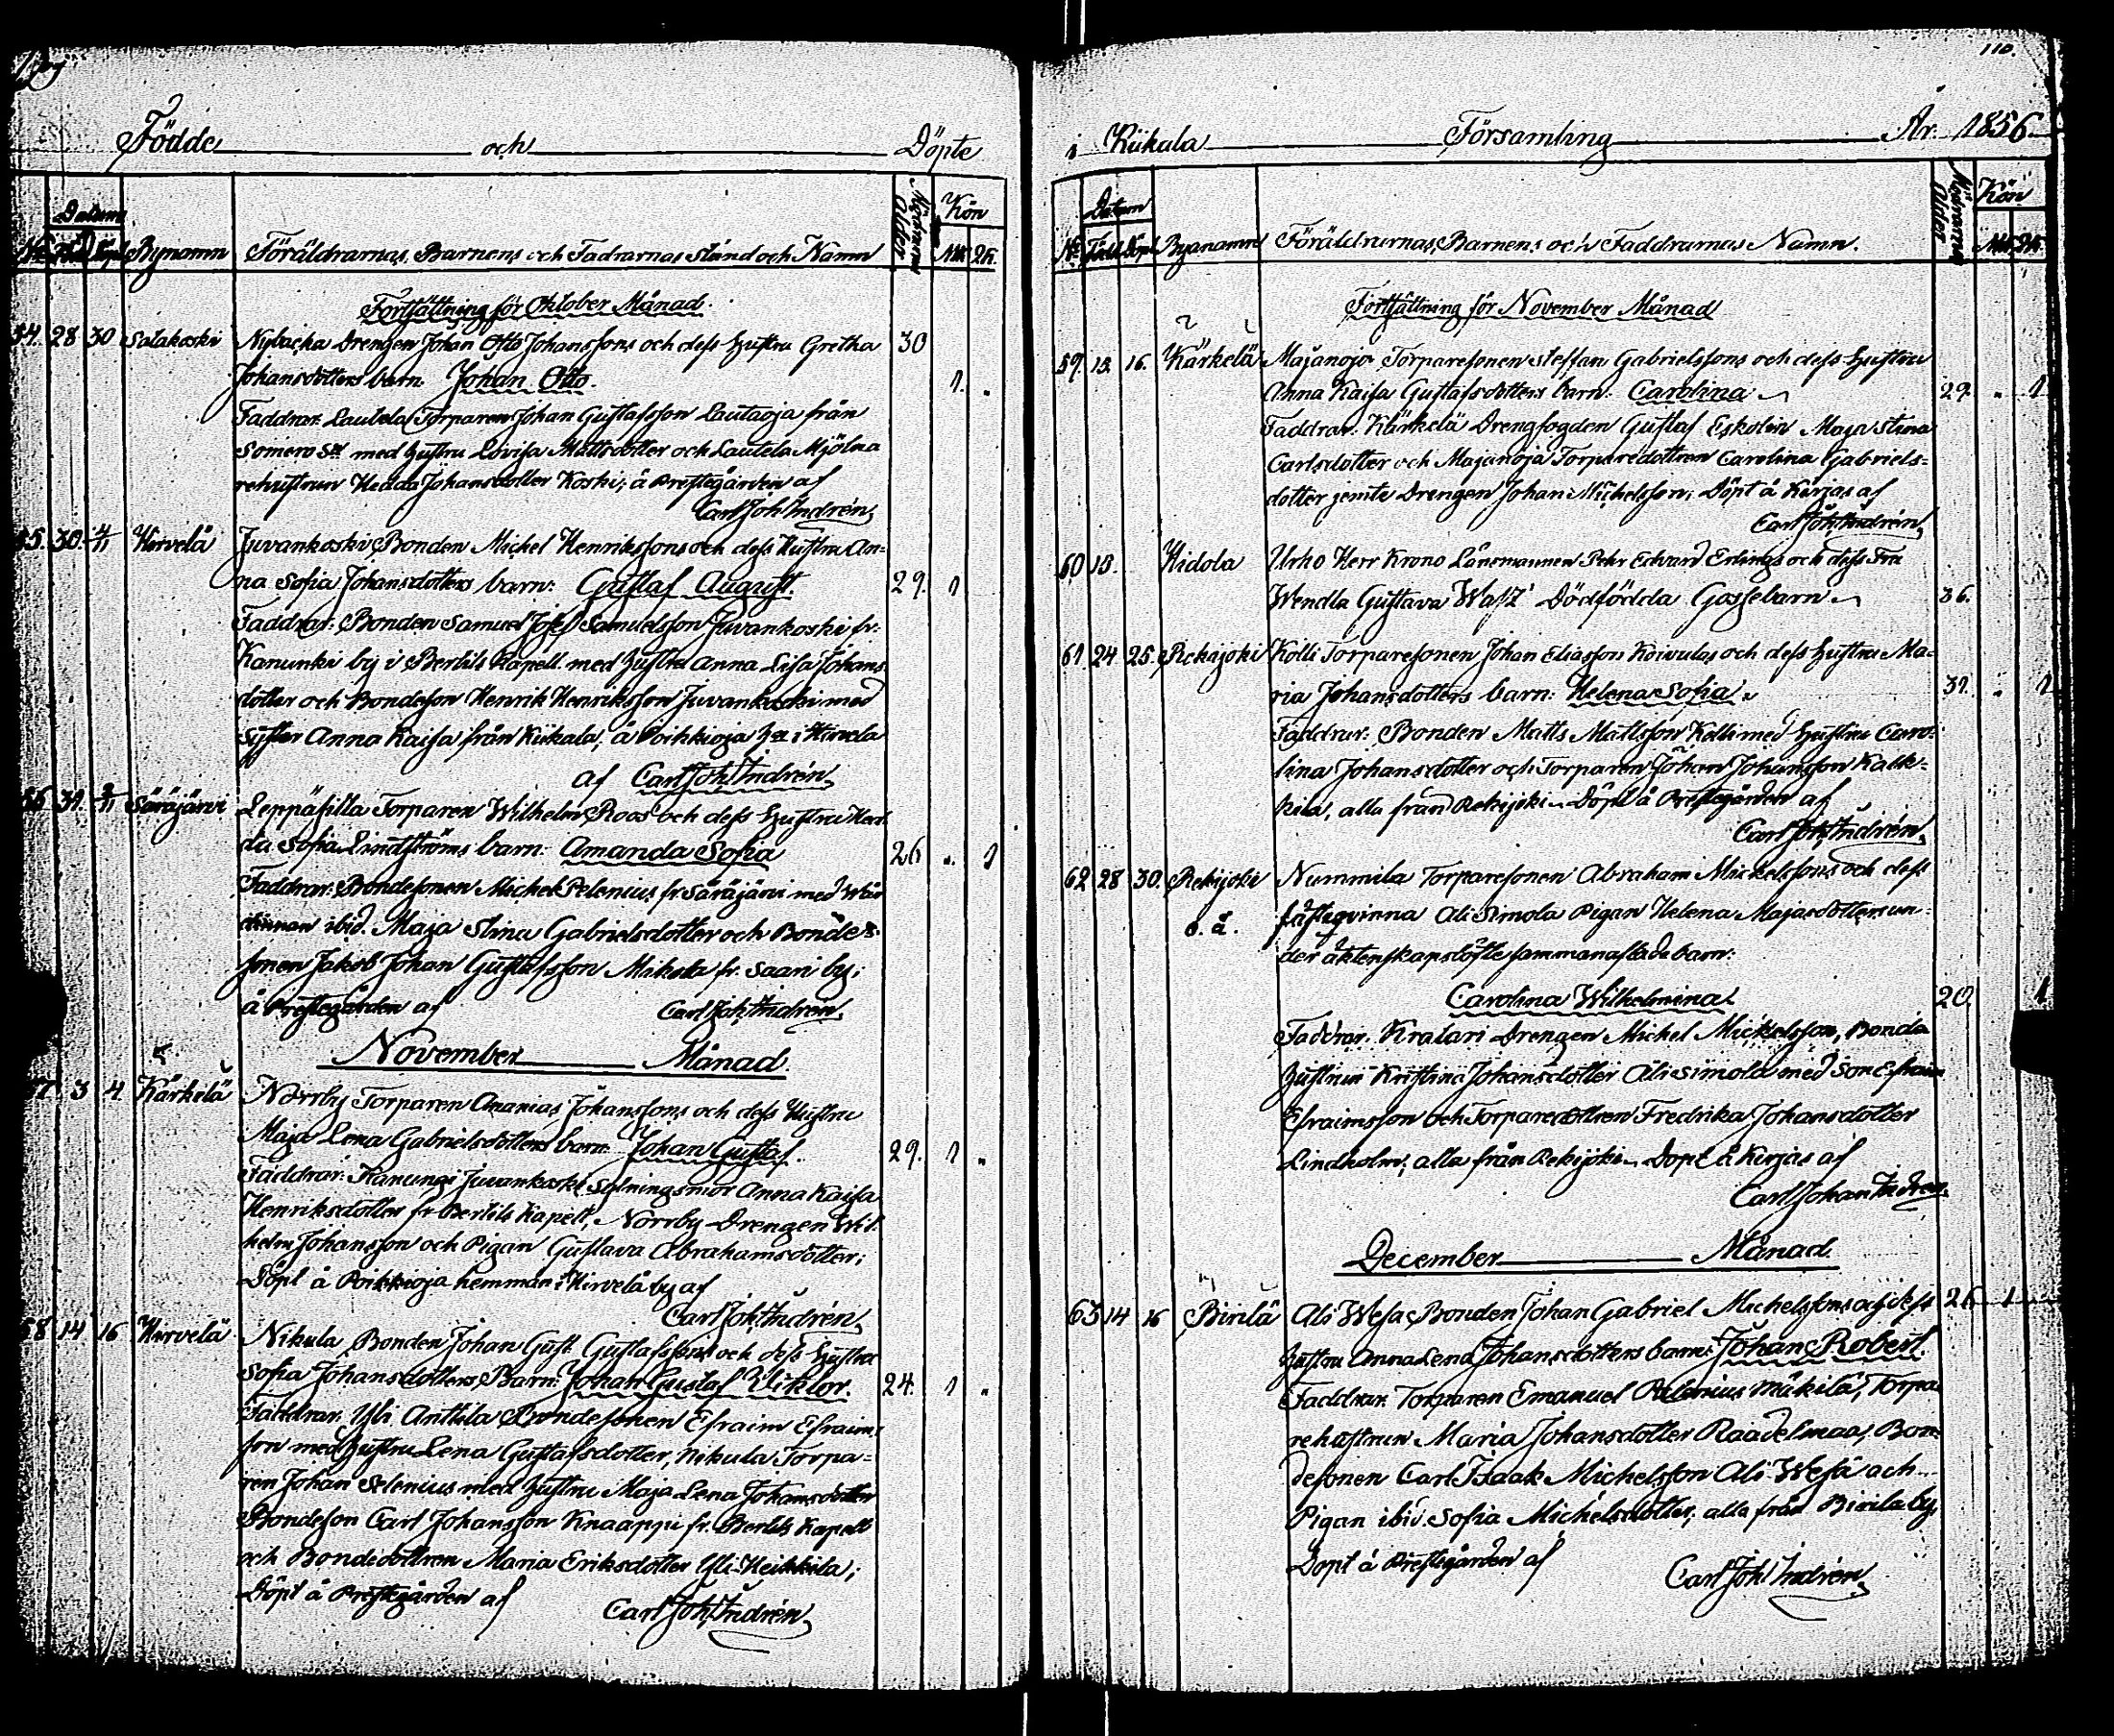 Födde och Döpte
Datum Kön
No Född Döpt Bynamn Föräldrarnas, Barnens och Fadrarnas stånd och Namn Mödrarnas Ålder M.K. Q.K.
Fortsättning för Oktober Månad.
54. 28 30 Salakoski Nybacka Drengen Johan Otto Johanssons och dess Hustru Gretha 30
Johansdotters barn. Johan Otto. 1. „
Faddrar: Lautela Torparen Johan Gustafsson Lautaoja från
Somero Sn med hustru Lovisa Mattsdotter och Lautela Mjölna
rehustrun Hedda Johansdotter Koski; å Prestegården af
Carl Joh. Indrén.
55. 30. 4/11 Hirvelä Juvankoski Bonden Michel Henrikssons och dess Hustru An-
na Sofia Johansdotters barn: Gustaf August. 29. 1
Faddrar: Bonden Samuel Josef Samuelsson Juvankoski fr:
Kanunki by i Bertils Kapell med hustru Anna Lisa Johans
dotter och Bondeson Henrik Henriksson Juvankoski med
syster Anna Kaisa från Kiikala; å Poikkioja Hn i Hirvela
af Carl Joh. Indrén
56 31. 2/11 Säräjärvi Leppäsilta Torparen Wilhelm Roos och dess Hustru Hed
da Sofia Lindströms barn: Amanda Sofia 26 „ 1
Faddrar: Bondesonen Michel Selenius fr Säräjärvi med Wär
dinnan ibid. Maja Stina Gabrielsdotter och Bonde-
sonen Jakob Johan Gustafsson Mikola fr. Saari by;
å Prestegården af Carl Joh. Indrén.
November Månad.
57 3 4 Kärkelä Norrby Torparen Ananias Johanssons och dess Hustru
Maja Lena Gabrielsdotters barn: Johan Gustaf. 29. 1 „
Faddrar: Kanungi Juvankoski Sytningsmor Anna Kaisa
Henriksdotter fr Bertils Kapell, Norrby Drengen Wil
helm Johansson och Pigan Gustava Abrahamsdotter;
Döpt å Poikkioja hemman i Hirvelä by af
Carl Joh. Indrén.
58 14 16 Hirvelä Nikula Bonden Johan Gust. Gustafssons och dess Hustru
Sofia Johansdotters Barn: Johan Gustaf Wiktor. 24. 1 „
Faddrar. Yli Anttila Bondesonen Efraim Efraims
son med Hustru Lena Gustafsdotter, Nikula Torpa-
ren Johan Selenius med Hustru Maja Lena Johansdotter
Bondeson Carl Johansson Knaappi fr. Bertils Kapell
och Bondedottren Maria Eriksdotter Yli-Heikkila;
Döpt å Prestegården af Carl Joh. Indrén
110.
i Kiikala Församling År 1856
Datum Kön
No Född Döpt Byanamn Föräldrarnas, Barnens och Faddrarnas Namn. Mödrarnas Ålder M.K. Q.K.
Fortsättning för November Månad
59. 15. 16. Kärkelä Majanoja Torparesonen Steffan Gabrielssons och dess Hustru
Anna Kaisa Gustafsdotters barn: Carolina 29. „ 1
Faddrar. Kärkelä Drengfogden Gustaf Eskolin Maja Stina
Carlsdotter och Majanoja Torparedottren Carolina Gabriels-
dotter jemte Drengen Johan Michelsson; Döpt å Kärjas af
Carl Joh. Indrén
60 15. Hidola Urho Herr Krono Länsmannen Pehr Edvard Erlings och dess Fru
Wendla Gustava Dödfödda Gossebarn 36.
61 24 25. Rekijoki Kölli Torparesonen Johan Eliasson Koivulas och dess Hustru Ma-
ria Johansdotters barn: Helena Sofia. 31. „ 1
Faddrar: Bonden Matts Mattsson Kölli med Hustru Caro-
lina Johansdotter och Torparen Johan Johansson Kakk-
kila, alla från Rekijoki. Döpt å Prestegården af
Carl Joh. Indrén.
62 28 30. Rekijoki Nummila Torparesonen Abraham Michelssons och dess
o. ä. fästeqvinna Ali Simola Pigan Helena Majasdotters un-
der äktenskapslöfte sammanaflade barn:
Carolina Wilhelmina. 20 1
Faddrar. Kratari Drengen Michel Mickelsson, Bonda
Hustrun Kristina Johansdotter Ali simola med son Efraim
Efraimsson och Torparedottren Fredrika Johansdotter
Lindholm; alla från Rekijoki. Döpt å Kirjas af
Carl Johan Indren.
December Månad.
63 14 16 Pirilä Ali Wesa Bonden Johan Gabriel Michelssons och dess 26 1
Hustru Anna Lena Johansdotters barn: Johan Robert.
Faddrar. Torparen Emanuel Palenius Mäkilä, Torpa
rehustrun Maria Johansdotter Raadelmaa, Bon-
desonen Carl Isaak Michelsson Ali Wesa och
Pigan ibid. Sofia Michelsdotter; alla från Birila by.
Döpt å Prestegården af Carl Joh. Indrén